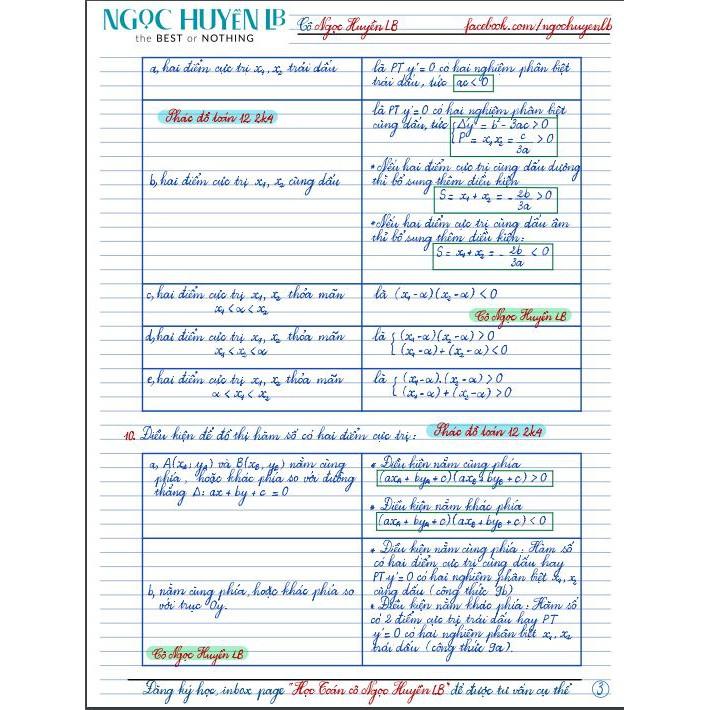 NGỌC HUYỀN LB
the BEST or NOTHING
Cô Ngọc Huyền LB
facebook.com/ngochuyenlb
a, hai điểm cực trị x₁, x₂ trái dấu
là PT y' = 0 có hai nghiệm phân biệt
trái dấu, tức ac < 0
Phác đồ toán 12 2k4
b, hai điểm cực trị x₁, x₂ cùng dấu
là PT y' = 0 có hai nghiệm phân biệt
cùng dấu, tức { Δ'y' = b² - 3ac > 0
P = x₁x₂ = c/3a > 0
* Nếu hai điểm cực trị cùng dấu dương
thì bổ sung thêm điều kiện
S = x₁ + x₂ = - 2b/3a > 0
* Nếu hai điểm cực trị cùng dấu âm
thì bổ sung thêm điều kiện:
S = x₁ + x₂ = - 2b/3a < 0
c, hai điểm cực trị x₁, x₂ thỏa mãn
x₁ < α < x₂
là (x₁ - α)(x₂ - α) < 0
Cô Ngọc Huyền LB
d, hai điểm cực trị x₁, x₂ thỏa mãn
x₁ < x₂ < α
là { (x₁ - α)(x₂ - α) > 0
(x₁ - α) + (x₂ - α) < 0
e, hai điểm cực trị x₁, x₂ thỏa mãn
α < x₁ < x₂
là { (x₁ - α).(x₂ - α) > 0
(x₁ - α) + (x₂ - α) > 0
10. Điều kiện để đồ thị hàm số có hai điểm cực trị:
Phác đồ toán 12 2k4
a, A(x_A; y_A) và B(x_B, y_B) nằm cùng
phía, hoặc khác phía so với đường
thẳng Δ: ax + by + c = 0
* Điều kiện nằm cùng phía
(ax_A + by_A + c)(ax_B + by_B + c) > 0
* Điều kiện nằm khác phía
(ax_A + by_A + c)(ax_B + by_B + c) < 0
b, nằm cùng phía, hoặc khác phía so
với trục Oy.
Cô Ngọc Huyền LB
* Điều kiện nằm cùng phía: Hàm số
có hai điểm cực trị cùng dấu hay
PT y' = 0 có hai nghiệm phân biệt x₁, x₂
cùng dấu (công thức 9b)
* Điều kiện nằm khác phía: Hàm số
có 2 điểm cực trị trái dấu hay PT
y' = 0 có hai nghiệm phân biệt x₁, x₂
trái dấu (công thức 9a).
Đăng ký học, inbox page "Học Toán cô Ngọc Huyền LB" để được tư vấn cụ thể
3